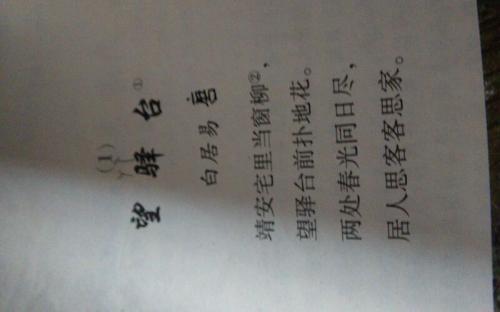 望驿台①
(1)
白居易 唐
靖安宅里当窗柳②,
望驿台前扑地花。
两处春光同日尽,
居人思客客思家。